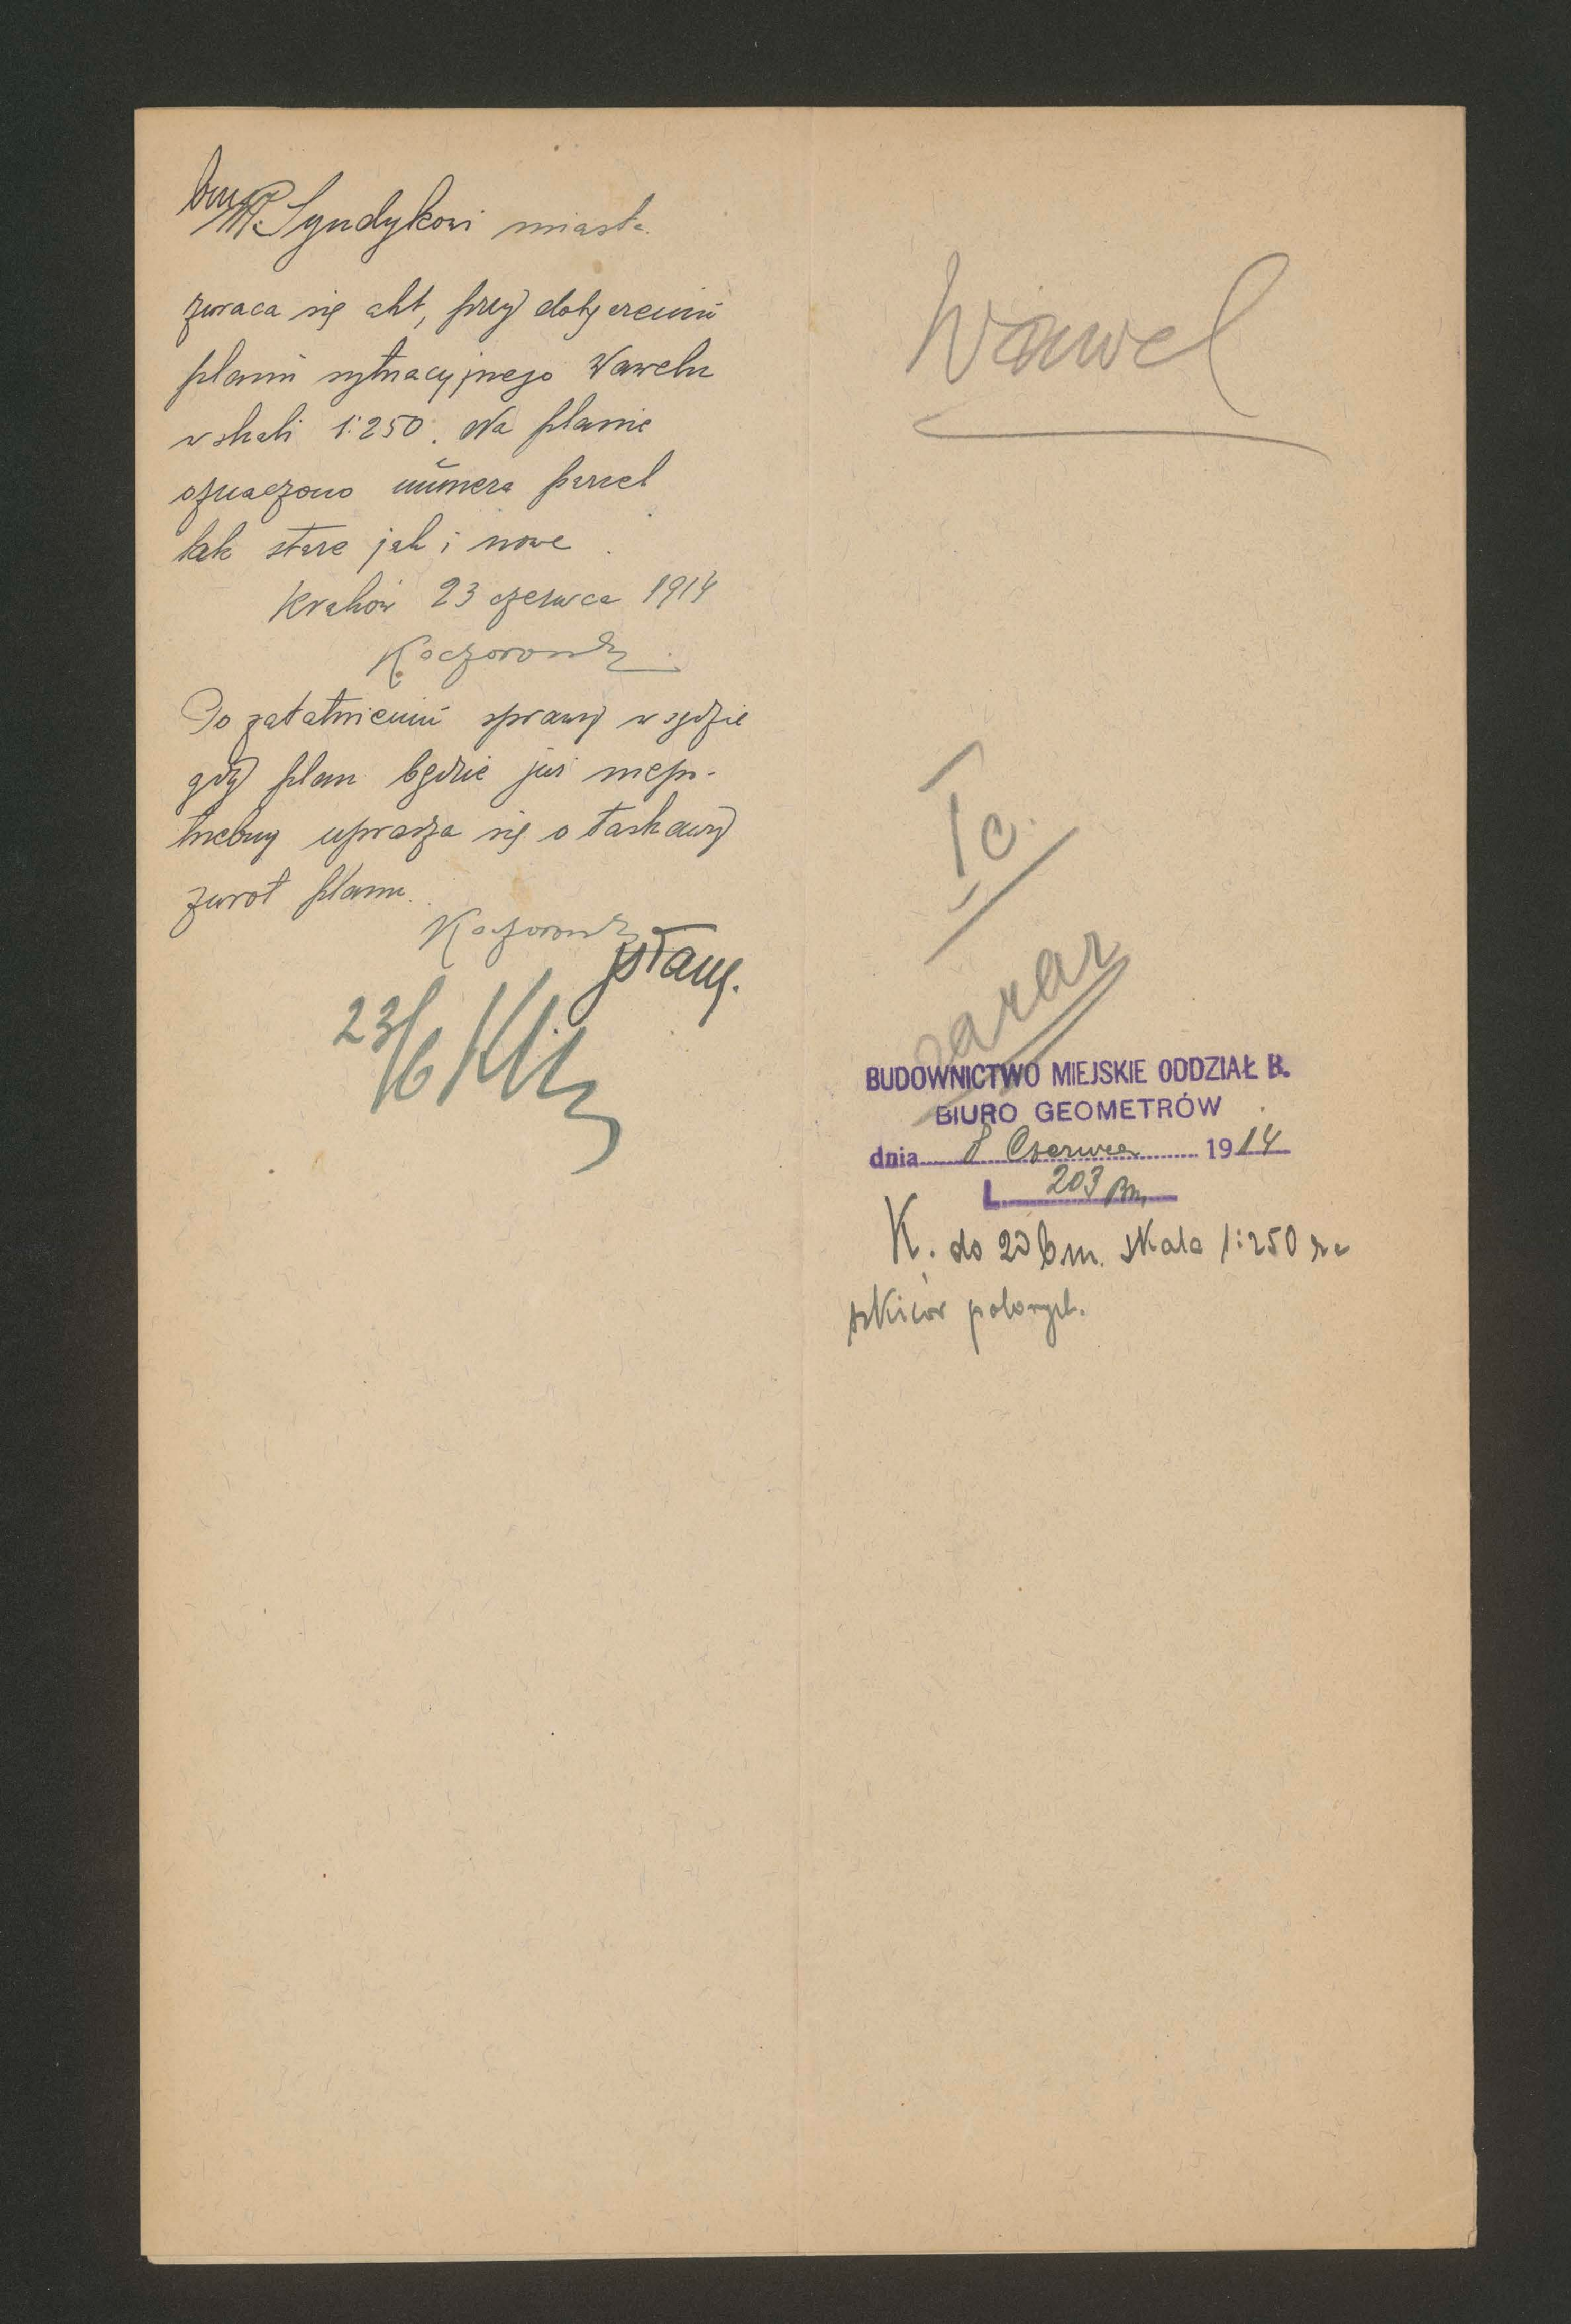 P. Syndykowi miasta.
zwraca się akt, przy dołączeniu
planu sytuacyjnego Wawelu
w skali 1:250. Na planie
oznaczono numera parcel
tak stare jak i nowe.
Kraków 23 czerwca 1914
Kaczorowski
Po załatwieniu sprawy w sądzie
gdy plan będzie już niepo-
trzebny uprasza się o łaskawy
zwrot planu.
Kaczorowski
23/6
Wawel
Ic.
zaraz
BUDOWNICTWO MIEJSKIE ODDZIAŁ B.
BIURO GEOMETRÓW
dnia 8 Czerwca 1914
L. 203 Bm.
K. do 20 b.m. skala 1:250 ze
szkiców polowych.